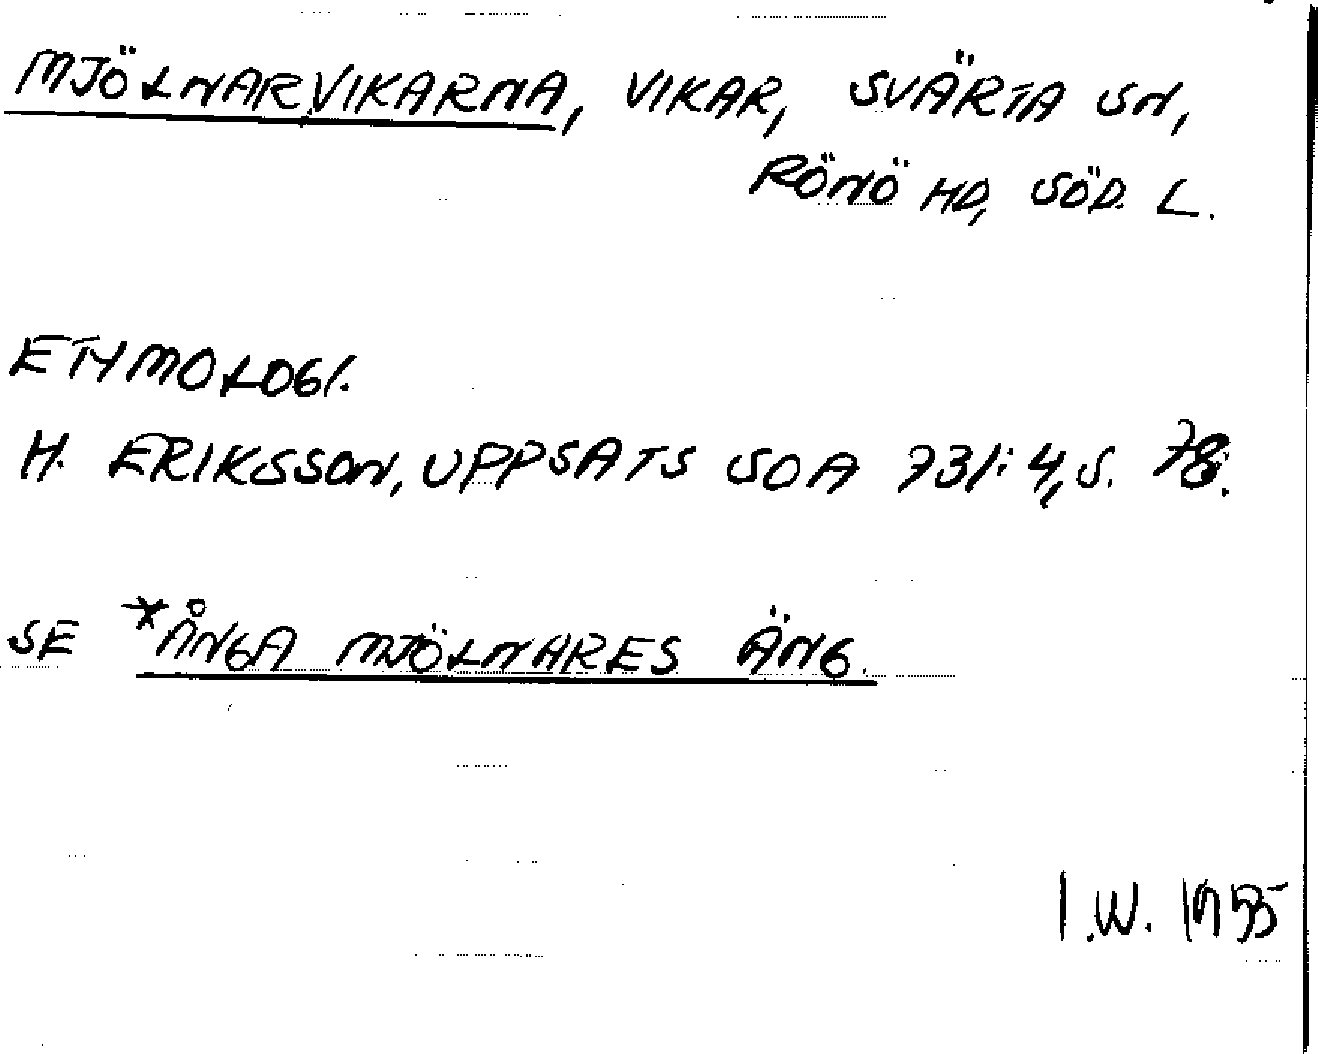 MJÖLNARVIKARNA, VIKAR, SVÄRTA SN,
RÖNÖ HD, SÖD. L.
ETYMOLOGI.
H. ERIKSSON, UPPSATS SOA 731:4, S. 78.
SE *ÅNGA MJÖLNARES ÄNG.
I.W.